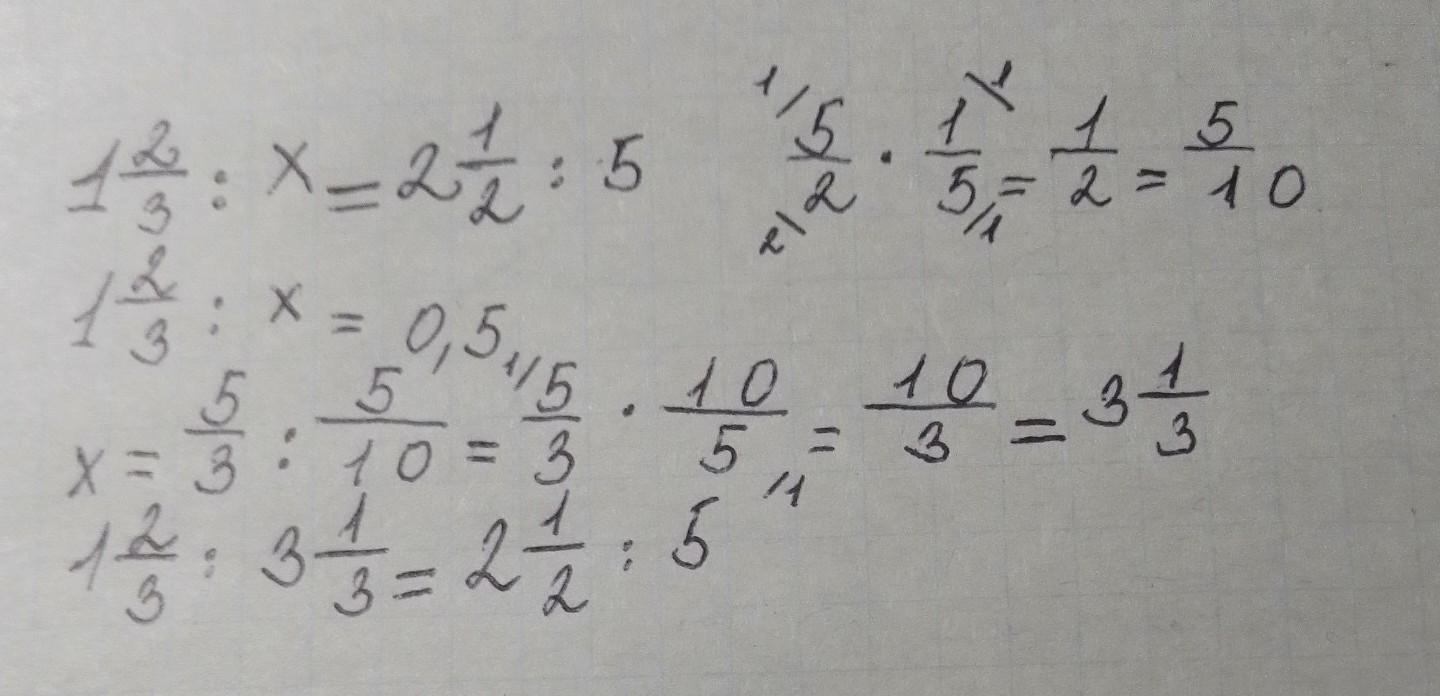 1 2/3 : x = 2 1/2 : 5
1/ 5/2 2\ · 1/5 \1 /1 = 1/2 = 5/10
1 2/3 : x = 0,5
x = 5/3 : 5/10 = 1/ 5/3 · 10/5 /1 = 10/3 = 3 1/3
1 2/3 : 3 1/3 = 2 1/2 : 5